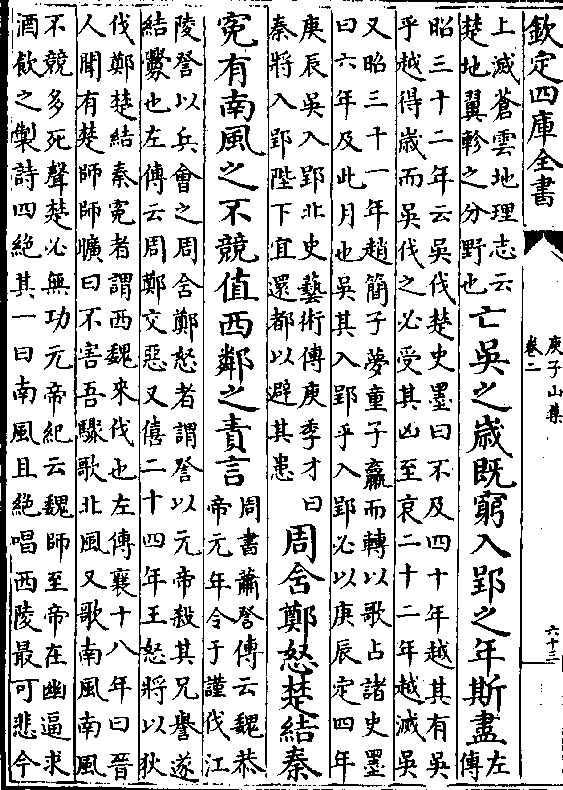 欽定四庫全書
庚子山集
卷二
六十三
上滅蒼雲地理志云
楚地翼軫之分野也
亡吳之歲既窮入郢之年斯盡
左
傳
昭三十二年云吳伐楚史墨曰不及四十年越其有吳
乎越得歲而吳伐之必受其凶至哀二十二年越滅吳
又昭三十一年趙簡子夢童子臝而轉以歌占諸史墨
曰六年及此月也吳其入郢乎入郢必以庚辰定四年
庚辰吳入郢北史藝術傳庚季才曰
秦將入郢陛下宜還都以避其患
周含鄭怒楚結秦
寃有南風之不競值西鄰之責言
周書蕭詧傳云魏恭
帝元年令于謹伐江
陵詧以兵會之周含鄭怒者謂詧以元帝殺其兄譽遂
結釁也左傳云周鄭交惡又僖二十四年王怒將以狄
伐鄭楚結秦寃者謂西魏來伐也左傳襄十八年曰晉
人聞有楚師師曠曰不害吾驟歌北風又歌南風南風
不競多死聲楚必無功元帝紀云魏師至帝在幽逼求
酒飲之製詩四絕其一曰南風且絕唱西陵最可悲今